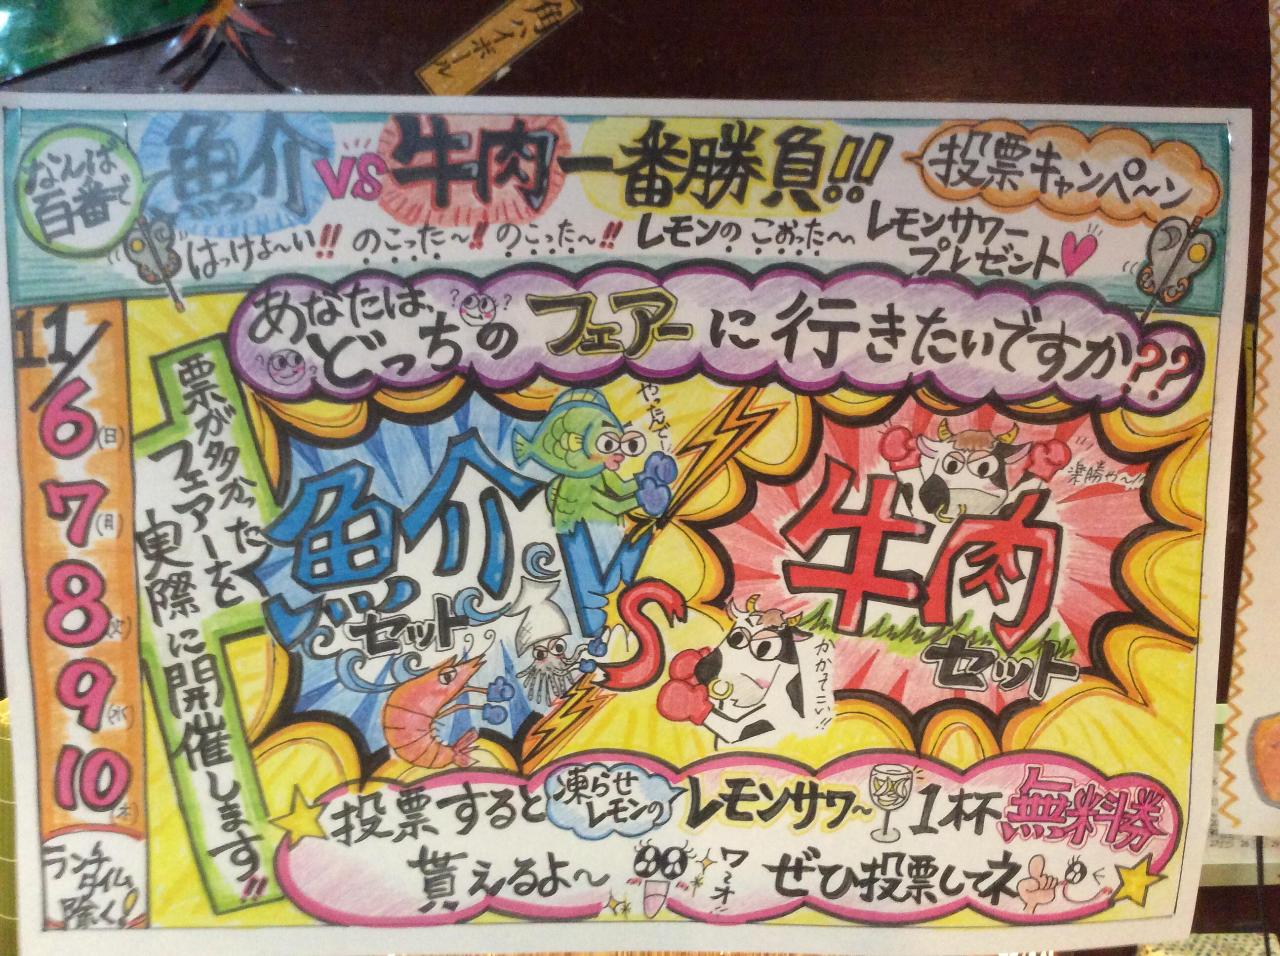 角ハイボール
なんば
百番で
魚介VS牛肉一番勝負!!
投票キャンペ〜ン
はっけよ〜い!! のこった〜!! のこった〜!! レモンの こおった〜
レモンサワー
プレゼント
あなたは、
どっちのフェアーに行きたいですか??
11/
6(日)
7(月)
8(火)
9(水)
10(木)
ランチ
タイム
除く!
票が多かった
フェアーを
実際に開催します!!
魚介
セット
やったんで〜
VS
牛肉
セット
楽勝や〜!!
かかってこい!!
投票すると
凍らせ
レモンの
レモンサワ〜
1杯無料券
貰えるよ〜
ワーオ
ぜひ投票してネ